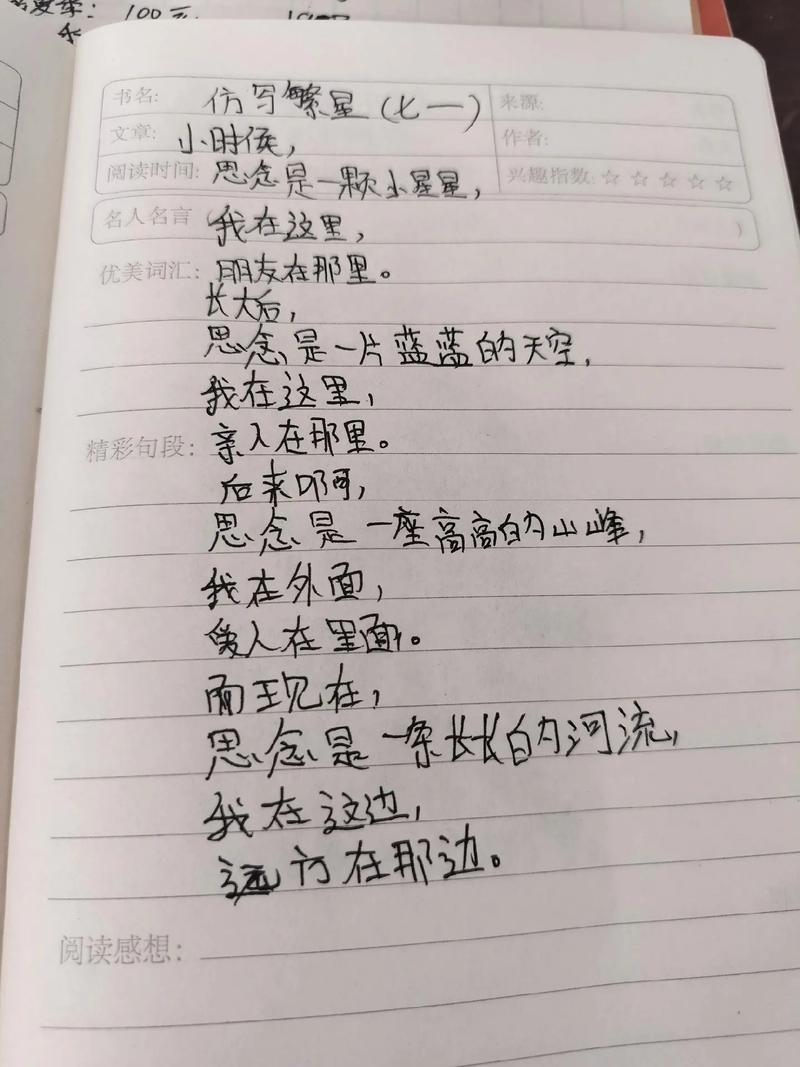 100元
书名: 仿写繁星(七一) 来源:
文章: 小时候, 作者:
阅读时间: 思念是一颗小星星, 兴趣指数: ☆ ☆ ☆ ☆ ☆
名人名言 (我在这里, )
优美词汇: 朋友在那里。
长大后,
思念是一片蓝蓝的天空,
我在这里,
精彩句段: 亲人在那里。
后来啊,
思念是一座高高的山峰,
我在外面,
爱人在里面。
而现在,
思念是一条长长的河流,
我在这边,
远方在那边。
阅读感想: